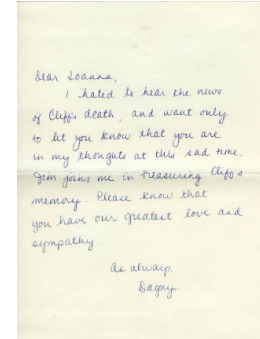 Dear Joanna,
I hated to hear the news
of Cliff's death, and want only
to let you know that you are
in my thoughts at this sad time.
Jim joins me in treasuring Cliff's
memory. Please know that
you have our greatest love and
sympathy
As always.
Dagny